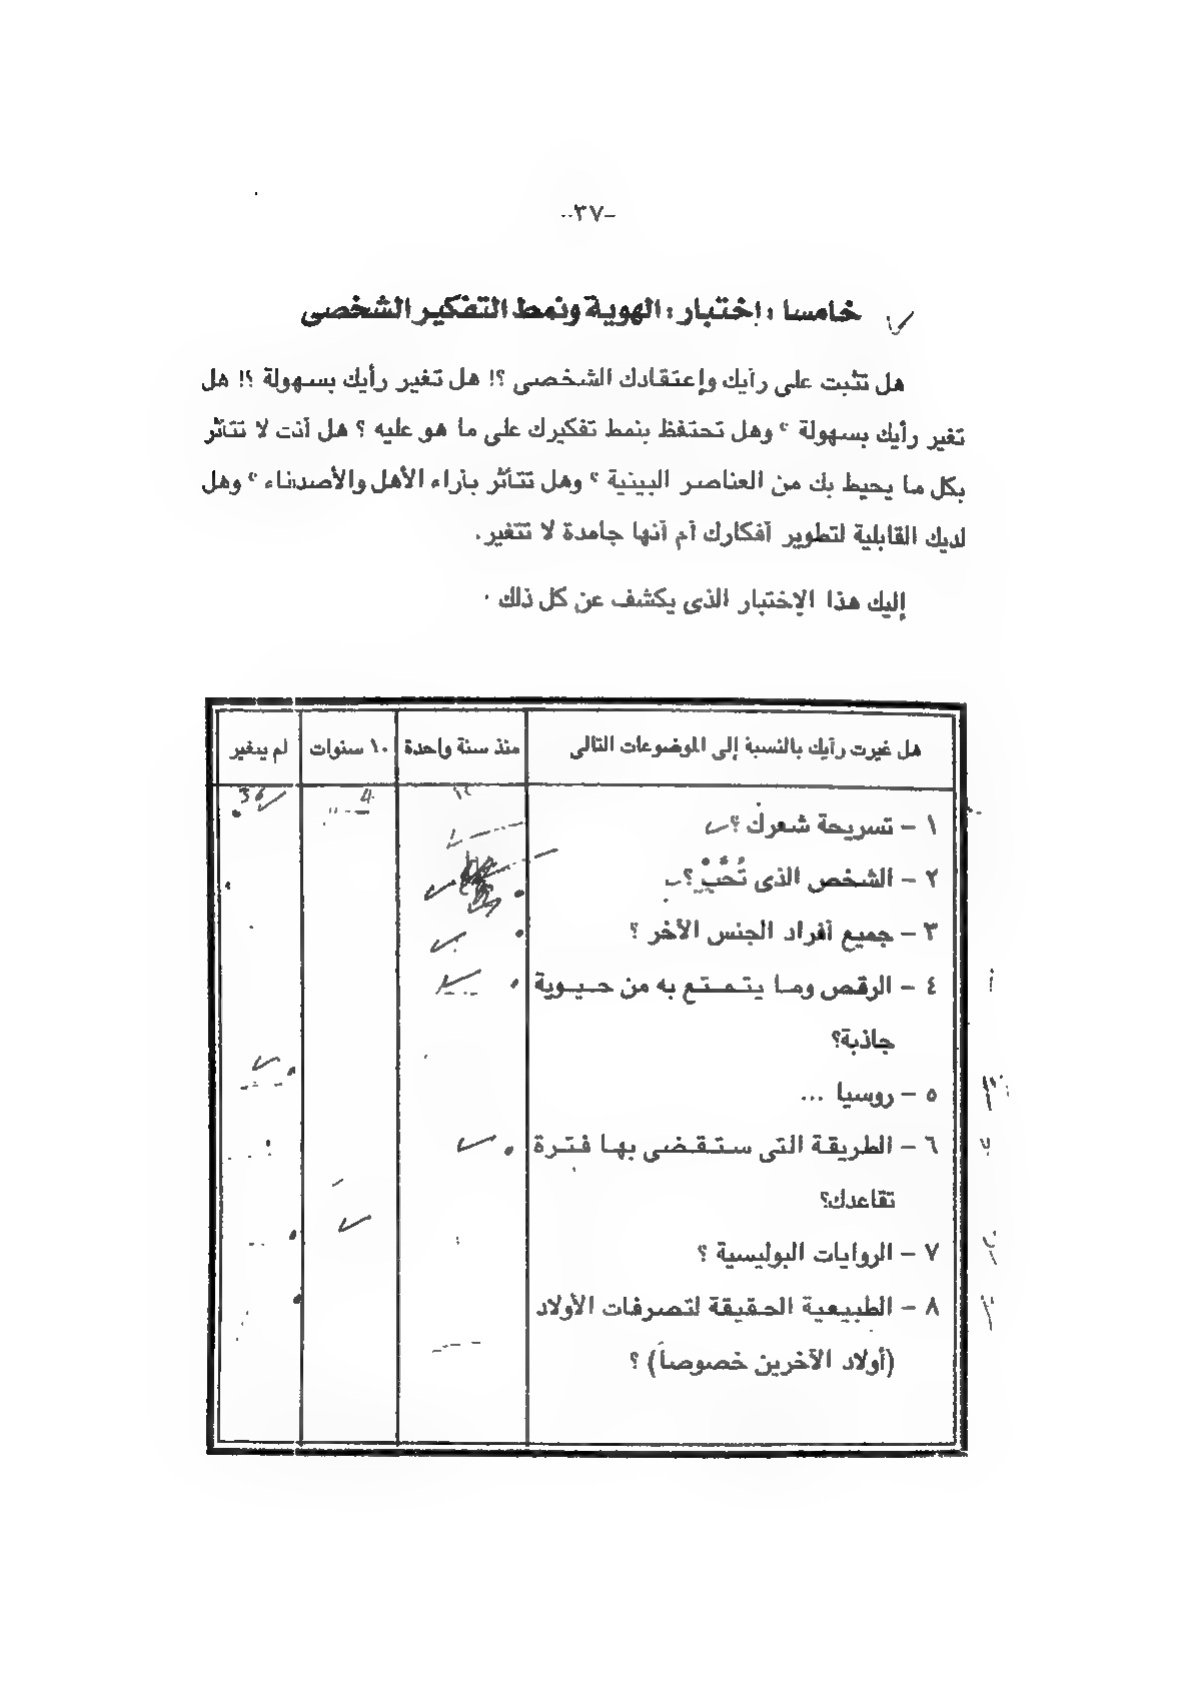 -٣٧-
خامسا : إختبار : الهوية ونمط التفكير الشخصى
هل تثبت على رأيك وإعتقادك الشخصى ؟! هل تغير رأيك بسهولة ؟! هل
تغير رأيك بسهولة ؟ وهل تحتفظ بنمط تفكيرك على ما هو عليه ؟ هل أنت لا تتأثر
بكل ما يحيط بك من العناصر البيئية ؟ وهل تتأثر بآراء الأهل والأصدقاء ؟ وهل
لديك القابلية لتطوير أفكارك أم أنها جامدة لا تتغير.
إليك هذا الإختبار الذى يكشف عن كل ذلك .
هل غيرت رأيك بالنسبة إلى الموضوعات التالى | منذ سنة واحدة | ١٠ سنوات | لم يتغير
4 36
١ – تسريحة شعرك ؟
٢ – الشخص الذى تُحَبْ ؟
٣ – جميع أفراد الجنس الآخر ؟
٤ – الرقص وما يتمتع به من حيوية
جاذبة؟
٥ – روسيا ...
٦ – الطريقة التى ستقضى بها فترة
تقاعدك؟
٧ – الروايات البوليسية ؟
٨ – الطبيعية الحقيقة لتصرفات الأولاد
(أولاد الآخرين خصوصاً) ؟